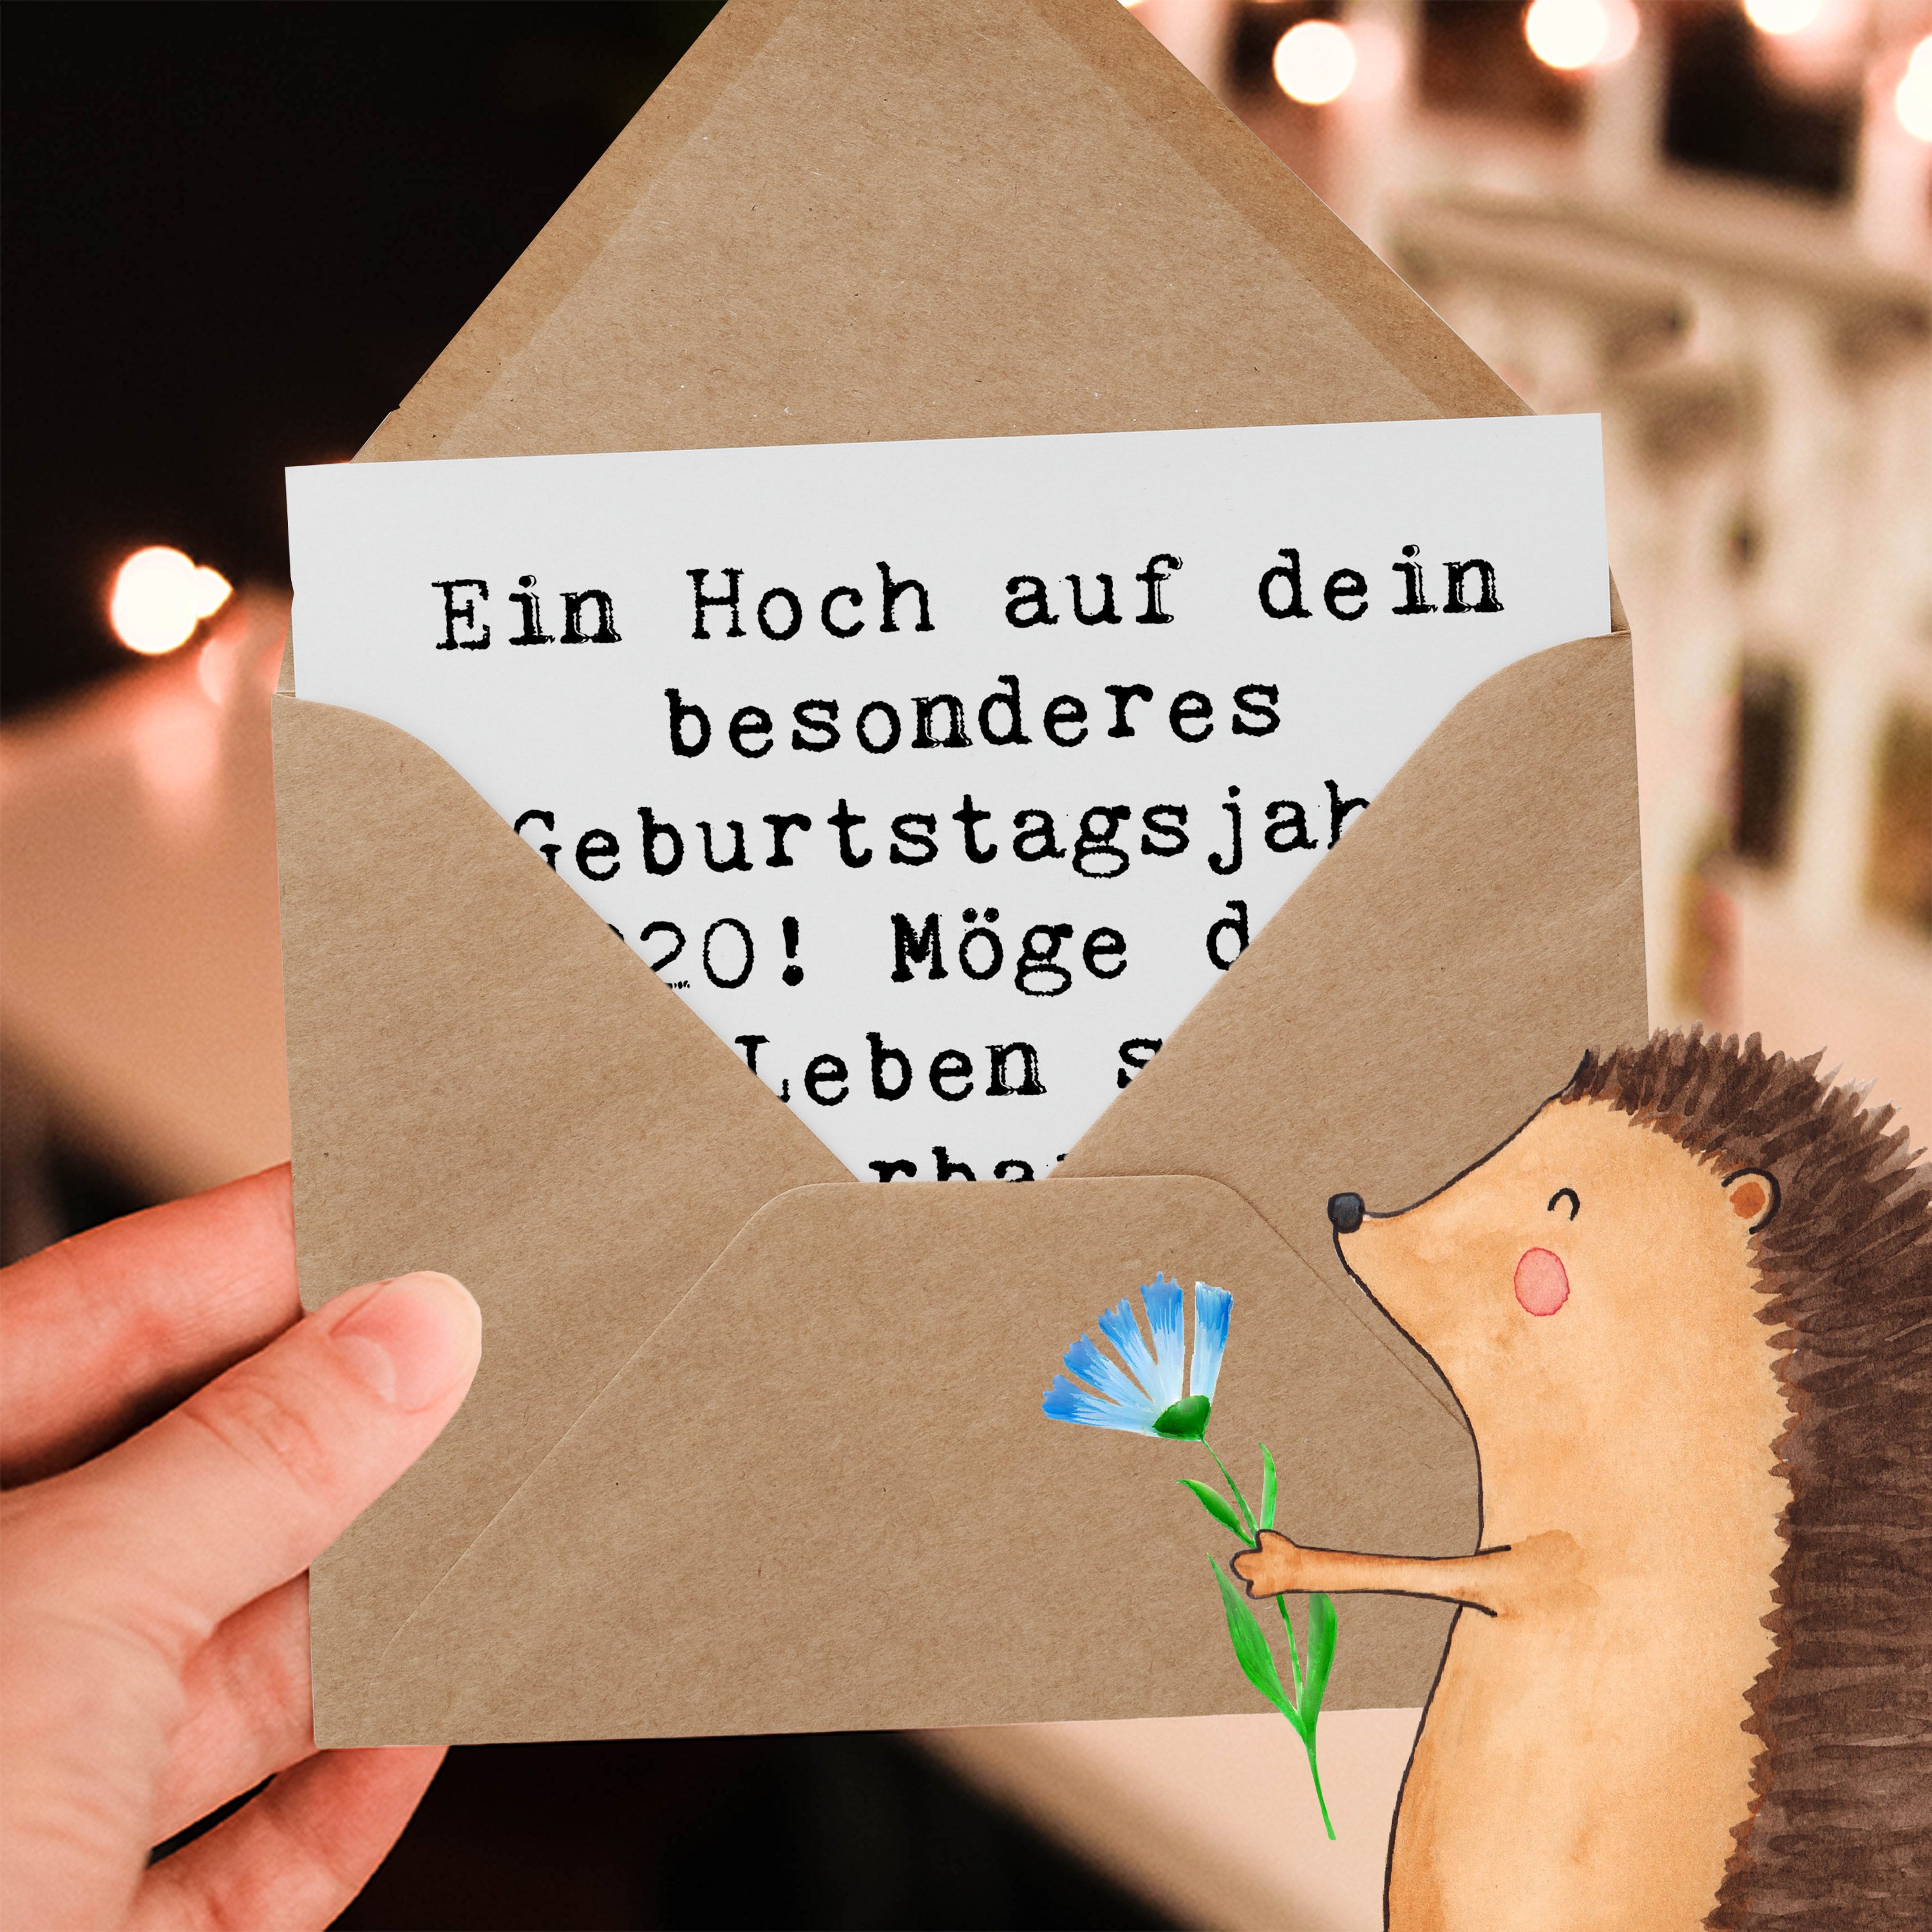 Ein Hoch auf dein
besonderes
Geburtstagsjah
20! Möge d
Leben s